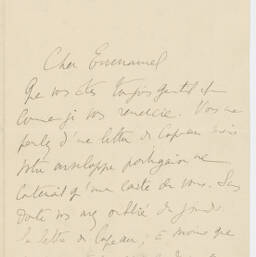 Cher Emmanuel
Que vous êtes toujours gentil et
comme je vous remercie. Vous me
parlez d'une lettre de Copeau mais
votre enveloppe ne
contenait qu'une carte de vous. Sans
doute vous avez oublié de joindre
la lettre de Copeau; à moins que